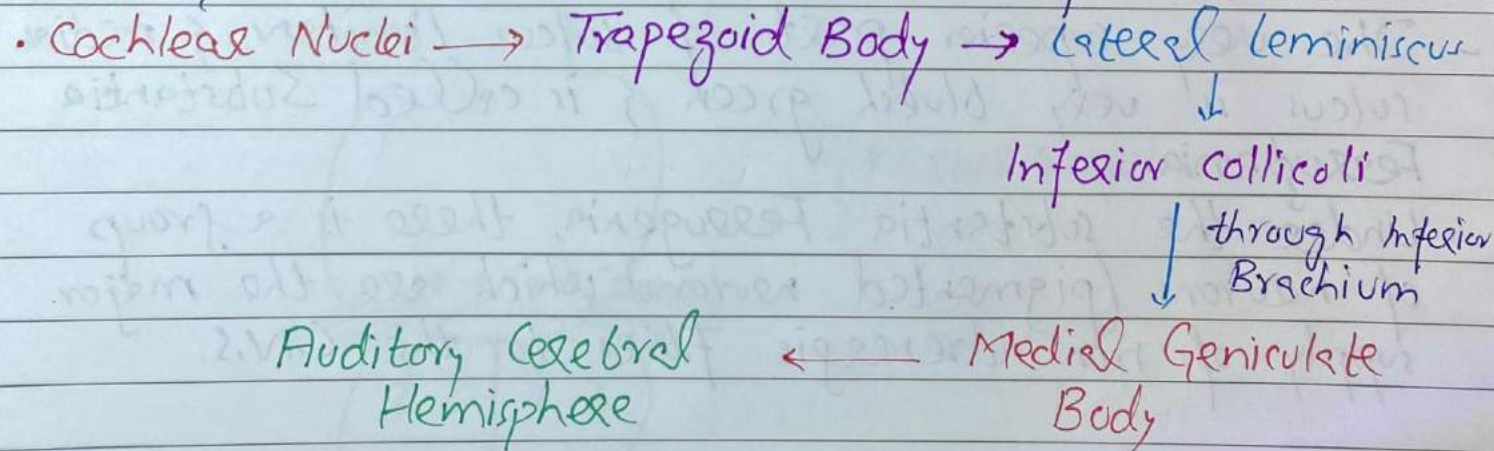 . Cochlear Nuclei → Trapezoid Body → Lateral Leminiscus
↓
Inferior Collicoli
↓ through Inferior
Brachium
Auditory Cerebral ← Medial Geniculate
Hemisphere Body